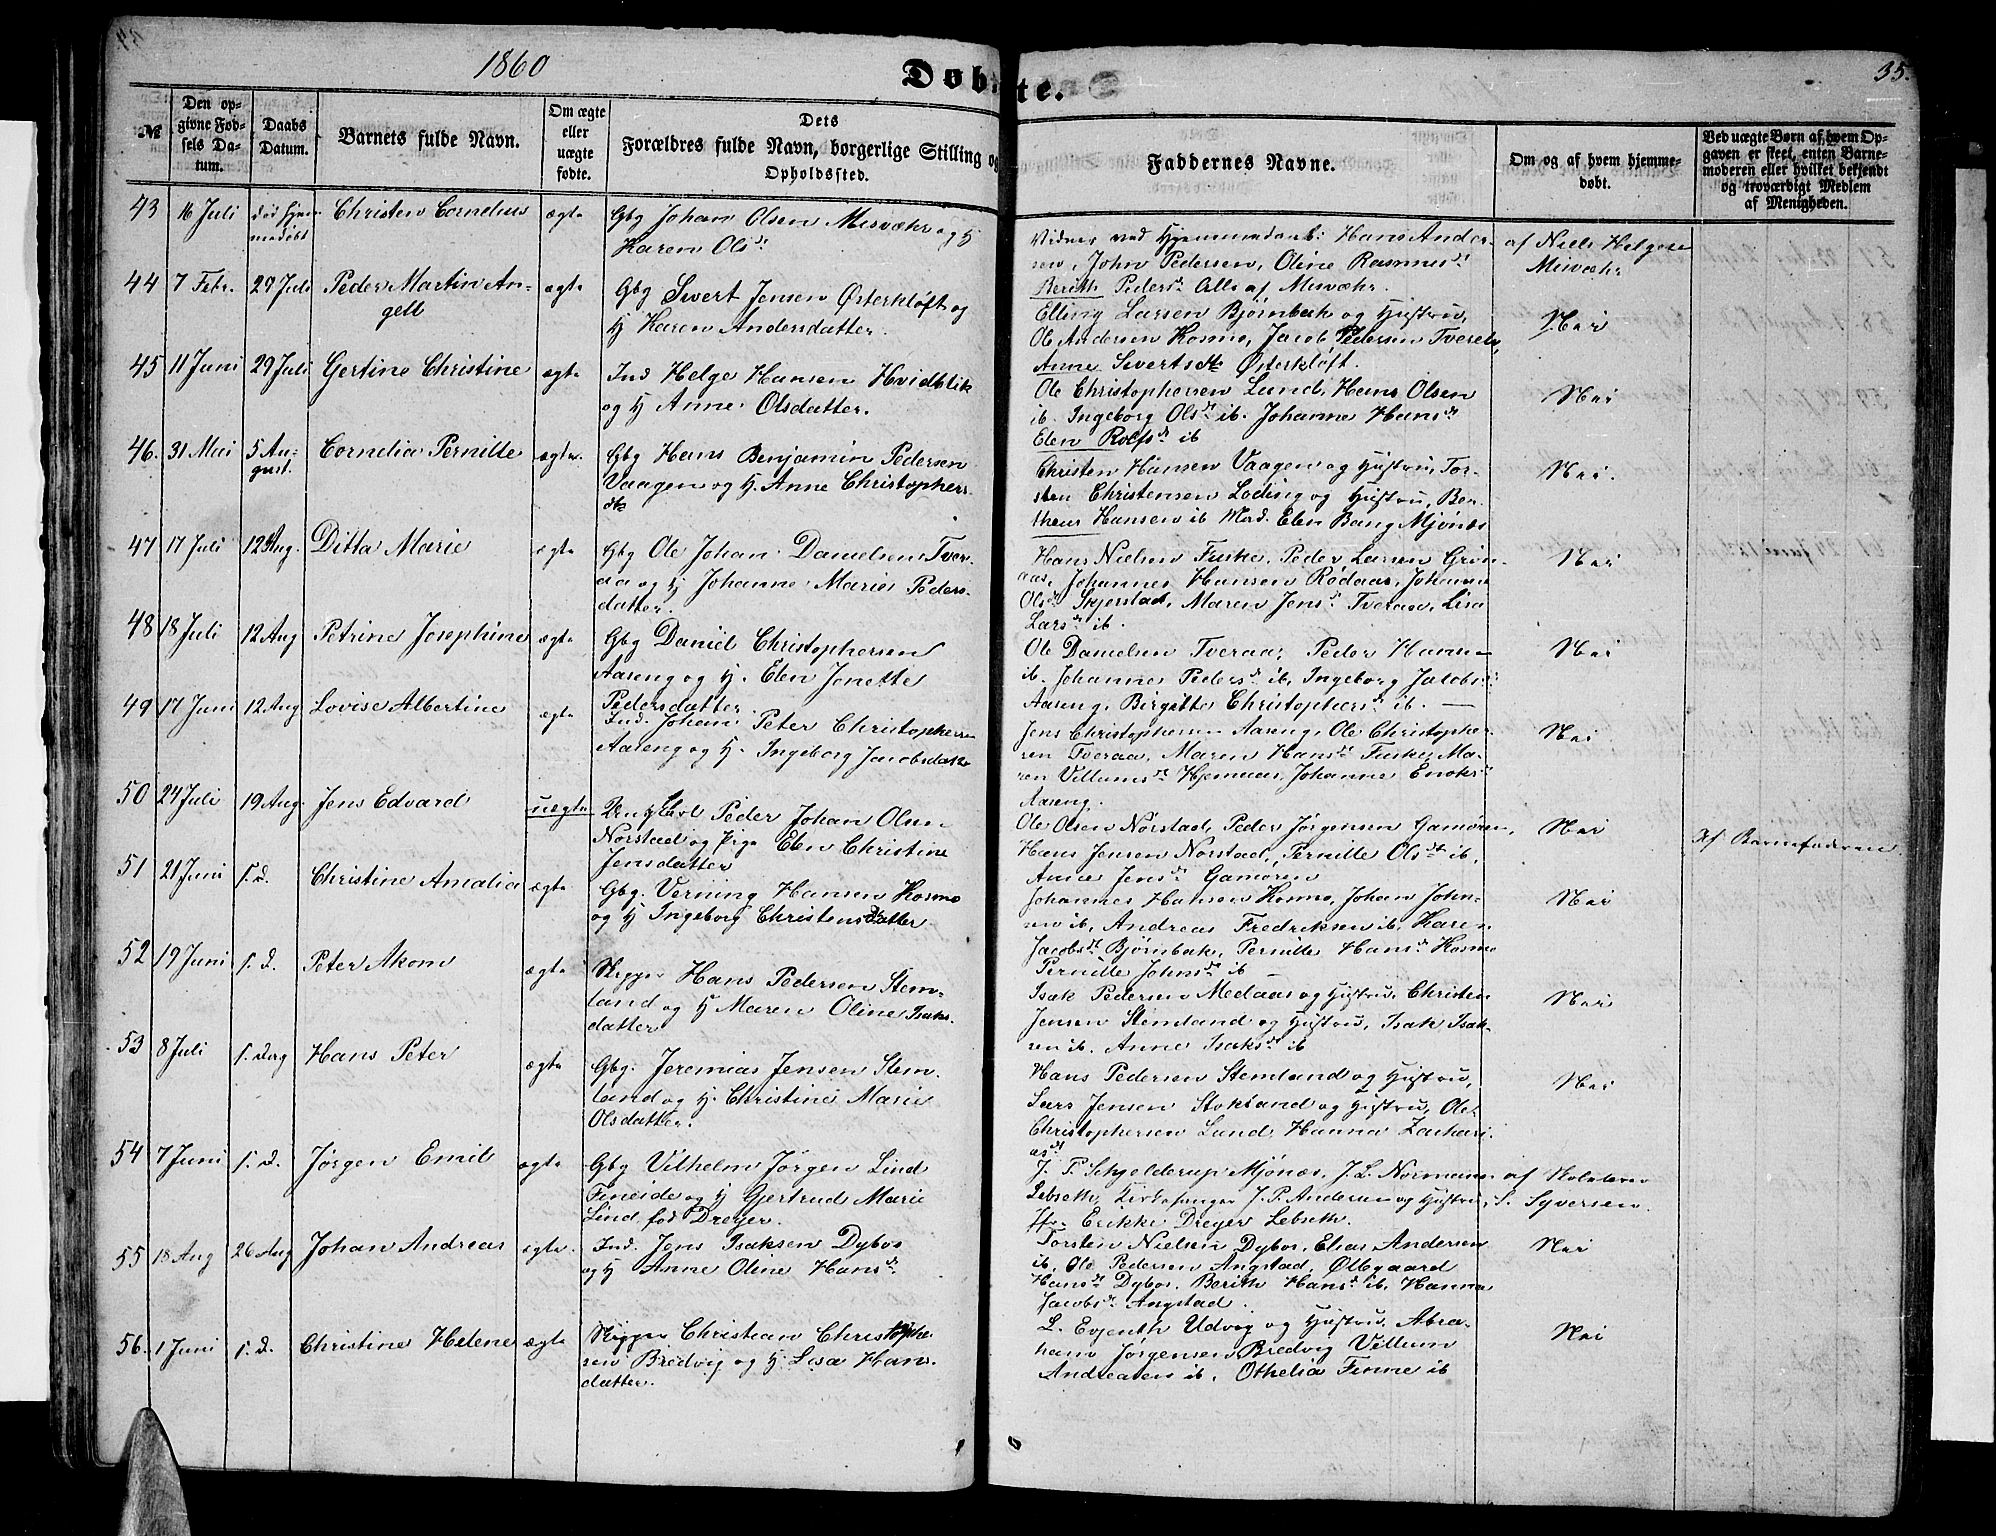 1860
Døbte.
35.
№
Den opgivne Fødsels Datum.
Daabs Datum.
Barnets fulde Navn.
Om ægte eller uægte fødte.
Dets Forældres fulde Navn, borgerlige Stilling og Opholdssted.
Faddernes Navne.
Om og af hvem hjemmedøbt.
Ved uægte Børn af hvem Opgaven er skeet, enten Barnemoderen eller hvilket bekjendt og troværdigt Medlem af Menigheden.
43 16 Juli død hjemmedøbt Christen Cornelius ægte
Gbg Johan Olsen Misvæhr og H
Karen Olsdr
Vidner ved Hjemmedaab: Hans Ander-
sen, John Pedersen, Oline Rasmusdr
Berith Pedersdr Alle af Misvæhr.
af Niels Helgesen
Misvæhr
44 7 Febr. 29 Juli Peder Martin An-
gell ægte
Gbg Sivert Jensen Østerkløft og
H Karen Andersdatter.
Elling Larsen Bjørnbak og Hustru,
Ole Andersen Kosmo, Jacob Pedersen Tveraa,
Anne Sivertsdtr Østerkløft.
Nei
45 11 Juni 29 Juli Gertine Christine ægte
Ind Helge Hansen Hvidblik
og H Anne Olsdatter.
Ole Christophersen Lund, Hans Olsen
ib. Ingeborg Olsdr ib. Johanna Hansdr
Elen Rolfsdr ib
Nei
46. 31 Mai 5 Au-
gust. Cornelia Pernille ægte.
Gbg Hans Benjamin Pedersen
Vaagen og H. Anne Christophers-
dtr
Christen Hansen Vaagen og Hustru, Tor-
sten Christensen Loding og Hustru, Ber-
theus Hansen ib Mad. Elen Bang Mjønæs
Nei.
47 17 Juli 12 Aug. Ditta Marie ægte
Gbg Ole Johan Danielsen Tver-
aa og H Johanne Marie Peders-
datter.
Hans Nielsen Fuske, Peder Larsen Grøn-
aas, Johannes Hansen Rødaas, Johanna
Olsdr Skjerstad, Maren Jensdr Tveraa, Lisa
Larsdr ib.
Nei
48 18 Juli 12 Aug Petrine Josephine ægte
Gbg Daniel Christophersen
Aaseng og H. Elen Jonette
Pedersdatter
Ole Danielsen Tveraa, Peder Hansen
ib. Johanne Pedersdr ib, Ingeborg Jacobsdr
Aaseng, Birgitte Christophersdr ib. —
Nei
49 17 Juni 12 Aug Lovise Albertine ægte
Ind. Johan Peter Christophersen
Aaseng og H. Ingeborg Jacobsdatter
Jens Christophersen Aaseng, Ole Christopher-
sen Tveraa, Maren Hansdr Fuske, Ma-
ren Villumsdr Hjemaas, Johanne Enoksdr
Aaseng.
Nei
50 24 Juli 19 Aug. Jens Edvard uægte
Ungkarl Peder Johan Olsen
Norstad og Pige Elen Christine
Jensdatter
Ole Olsen Norstad, Peder Jørgensen Gamøren,
Hans Jensen Norstad, Pernille Olsdr ib.
Anne Jensdr Gamøren
Nei
Af Barnefaderen
51 21 Juni s. d. Christine Amalia ægte
Gbg. Verning Hansen Kosmo
og H Ingeborg Christensdatter.
Johannes Hansen Kosmo, Johan John-
sen ib, Andreas Fredriksen ib, Karen
Jacobsdr Bjørnbak, Pernille Hansdr Kosmo
Pernille Johnsdr ib —
Nei
52 19 Juni s. d. Peter Akom ægte
Skipper Hans Pedersen Stem-
land og H Maren Oline Isaks-
datter
Isak Pedersen Medaas og Hustru, Christen
Jensen Stemland og Hustru, Isak Isak-
sen ib. Anne Isaksdr ib
Nei
53 8 Juli s. Dag Hans Peter ægte
Gbg. Jeremias Jensen Stem-
land og H. Christine Marie
Olsdatter.
Hans Pedersen Stemland og Hustru,
Lars Jensen Stokland og Hustru, Ole
Christophersen Lund, Hanna Zachari-
asdr
Nei
54 7 Juni s. d. Jørgen Emil ægte
Gbg Vilhelm Jørgen Lind
Fineide og H Gjertrud Marie
Lind, fød Dreyer.
J. P. Schjelderup Mjønæs, J. L. Normann
Løbseth, Kirkesanger J. P. Andersen og Hustru,
Jfr. Erikke Dreyer Løbseth.
af Skolelærer
S. Syversen.
55 18 Aug 26 Aug Johan Andreas ægte.
Ind. Jens Isaksen Dybos
og H Anne Oline Hansdr
Torsten Nielsen Dybos, Elias Andersen
ib. Ole Pedersen Angstad, Øllegaard
Hansdr Dybos, Berith Hansdr ib. Hanna
Jacobsdr Angstad.
Nei
56. 1 Juni s. d. Christine Helene ægte
Skipper Christian Christophe-
sen Bredvig og H. Lisa Hans-
datter.
L. Evjenth Udvig og Hustru, Abra-
ham Jørgensen Bredvig Villum
Andreasen ib. Othelia Finne ib
Nei